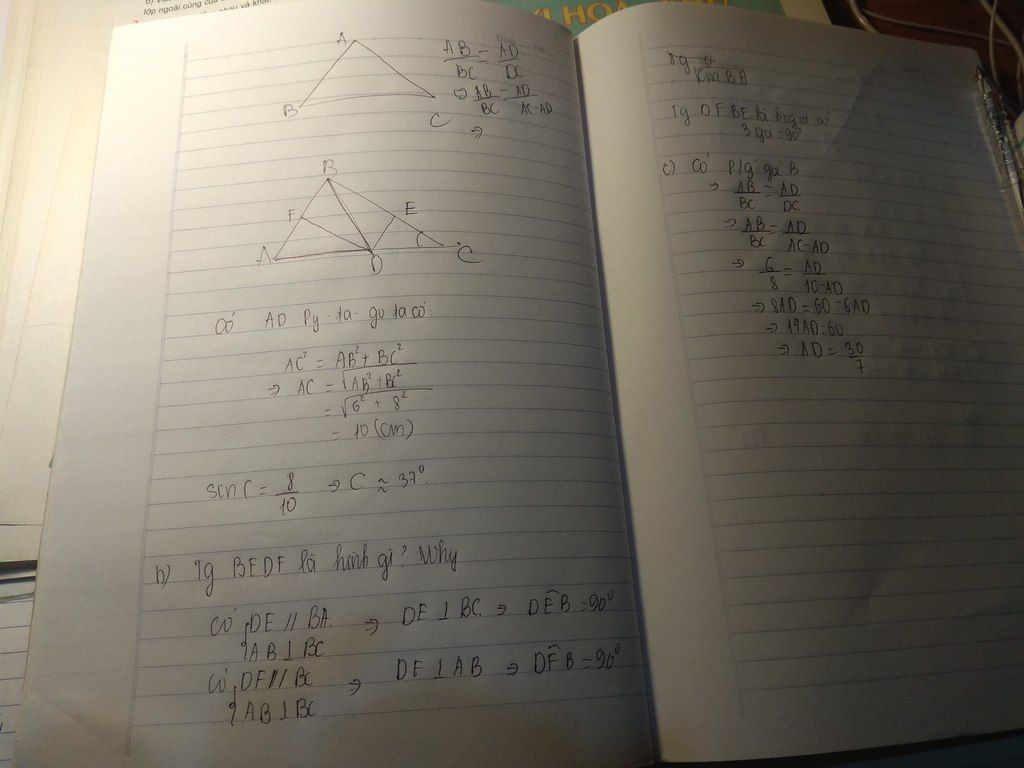 lớp ngoài cùng của
A
B
C
AB = AD
BC DC
AB = AD
BC AC-AD
⇒
B
F
E
A
D
C
Có AD Py-ta-go ta có:
AC² = AB² + BC²
⇒ AC = √AB² + BC²
= √6² + 8²
= 10 (cm)
sin C = 8/10 ⇒ C ≈ 37°
b) Tg BEDF là hình gì? Why
có {DE // BA ⇒ DE ⊥ BC ⇒ DÊB = 90°
AB ⊥ BC
có {DF // BC ⇒ DF ⊥ AB ⇒ DF̂B = 90°
AB ⊥ BC
Tg
Tg DFBE là có
3 góc = 90°
c) Có P/g góc B
⇒ AB = AD
BC DC
⇒ AB = AD
BC AC-AD
⇒ 6 = AD
8 10-AD
⇒ 8AD = 60 - 6AD
⇒ 14AD = 60
⇒ AD = 30
7